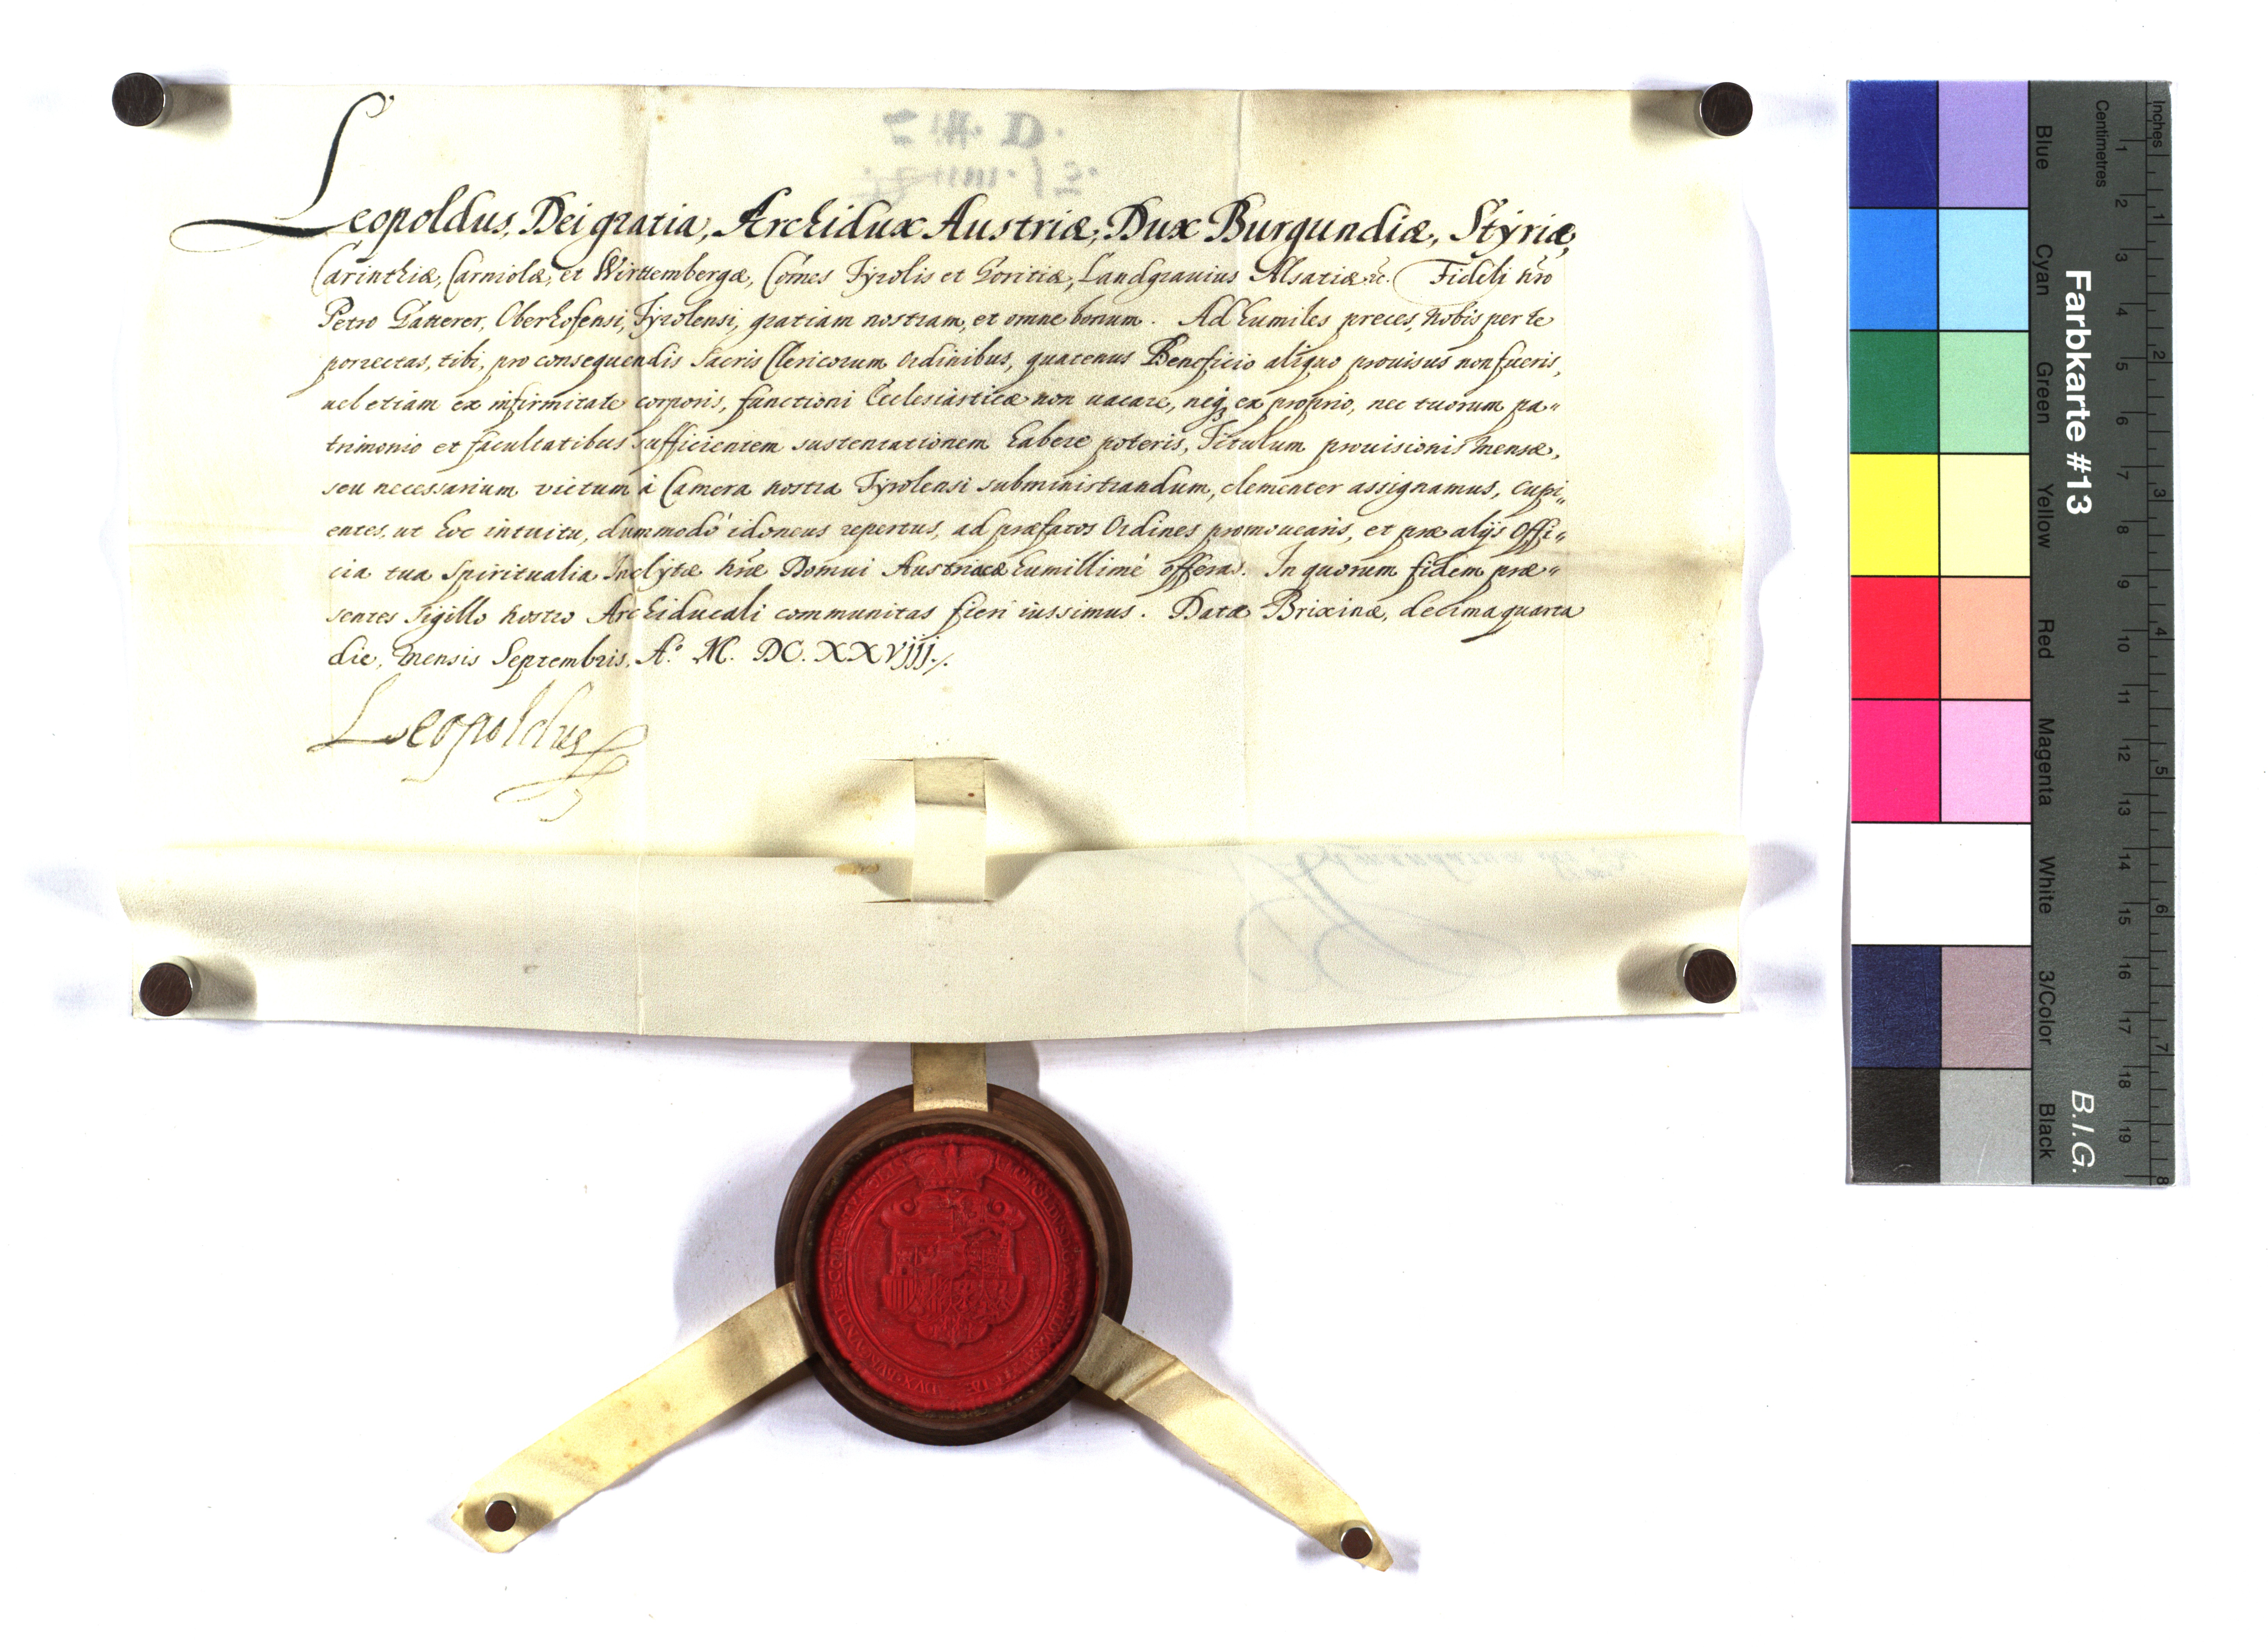 Leopoldus, Dei gratia, Archidux Austriæ, Dux Burgundiæ, Styriæ,
Carinthiæ, Carniolæ, et Wirttembergæ, Comes Tyrolis et Goritiæ, Landgravius Alsatiæ &c. Fideli nr̃o
Petro Gatterer, Oberhofensi, Tyrolensi, gratiam nostram, et omne bonum. Ad humiles preces, nobis per te
porrectas, tibi, pro consequendis Sacris Clericorum Ordinibus, quatenus Beneficio aliquo prouisus non fueris,
uel etiam ex infirmitate corporis, functioni Ecclesiasticæ non uacare, neq3 ex proprio, nec tuorum pa„
trimonio et facultatibus sufficientem sustentationem habere poteris, Titulum prouisionis Mensæ,
seu necessarium victum à Camera nostra Tyrolensi subministrandum, clementer assignamus, cupi„
entes, ut hoc intuitu, dummodò idoneus repertus, ad præfatos Ordines promouearis, et præ alijs Offi„
cia tua Spiritualia Inclytæ nr̃æ Domui Austriacæ humillimè offeras. In quorum fidem præ„
sentes Sigillo nostro Archiducali communitas fieri iussimus. Datæ Brixinæ, decimaquarta
die, Mensis Septembris, A.º M. DC. XXVIII./.
Leopoldus
Farbkarte #13
B.I.G.
Inches
Centimetres
Blue
Cyan
Green
Yellow
Red
Magenta
White
3/Color
Black
1 2 3 4 5 6 7 8 9 10 11 12 13 14 15 16 17 18 19
1 2 3 4 5 6 7 8